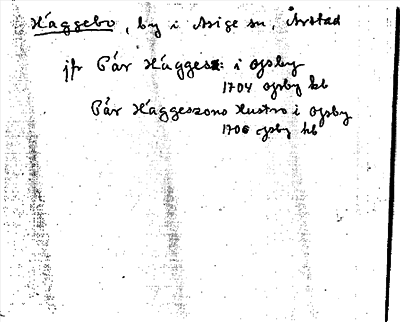 Häggebo, by i Asige sn, Årstad
jfr Pär Hägges i Ojsby
1704 Ojsby kb
Pär Häggesons Hustru i Ojsby
1706 Ojsby kb